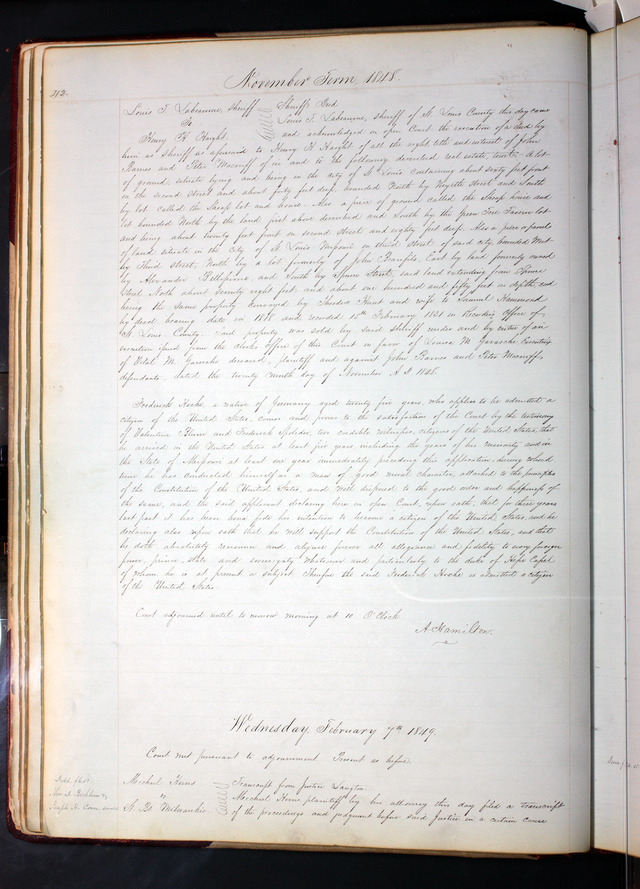 312.
November Term 1848.
Louis T. Labeaume, Sheriff
To
Henry H Haight,
Sheriffs Deed
Louis T. Labeaume, sheriff of St Louis County this day came
and acknowledged in open Court the execution of a deed by
him as sheriff as aforesaid to Henry H Haight of all the right title and interest of John
Barnes and Peter of in and to the following described real estate, to wit: A lot
of ground, situate lying and being in the city of St Louis containing about sixty feet front
on the second street and about forty feet deep, bounded North by street and South
by lot called the Sheep lot and house. Also a piece of ground called the Sheep house and
lot bounded North by the land first above described and South by the Green Tree Tavern lot
and being about twenty feet front on second street and eighty feet deep. Also a piece or parcel
of land situate in the City of St Louis Missouri on third street of said city, bounded West
by Third street, North by a lot formerly of John East by land formerly owned
by Alexander Bellissime, and South by Spruce Street, said land extending from Spruce
Street North about seventy eight feet, and about one hundred and fifty feet in depth, and
being the same property conveyed by Theodore Hunt and wife to Samuel Hammond
by deed bearing date in 1818 and recorded 15th February 1821 in Recording Office of
St. Louis County. Said property was sold by said Sheriff under and by virtue of an
execution issued from the clerks office of this Court in favor of Louisa M. Garesche Executrix
of Vital M. Garesche deceased, plaintiff and against John Barnes and Peter
defendants, dated the twenty day of November A.D 1848.
Frederick Hocke, a native of Germany aged twenty five years, who applies to be admitted a
citizen of the United States, comes and proves to the satisfaction of the Court by the testimony
of Valentine and Frederick two credible witnesses, citizens of the United States, that
he arrived in the United States at least five years including the years of his minority and in
the State of Missouri at least one year immediately preceding this application, during which
time he has conducted himself as a man of good moral character, attached to the principles
of the Constitution of the United States, and well disposed to the good order and happiness of
the same, and the said applicant declaring here in open Court, upon oath, that for three years
last past it has been bona fide his intention to become a citizen of the United States, and he
declaring also upon oath that he will support the Constitution of the United States, and that
he doth absolutely renounce and abjure forever all allegiance and fidelity to every foreign
power, prince, state and sovereignty whatsoever and particularly to the duke of Hesse Cassel
of whom he is at present a subject. Therefore the said Frederick Hocke is admitted a citizen
of the United States.
Court adjourned until to morrow morning at 10 O'Clock
A. Hamilton.
Wednesday February 7th 1849.
Court met pursuant to adjournment Present as before.
Michael Kerns
vs
Transcript from Justice Langton
Michael Kerns plaintiff by his attorney this day filed a transcript
of the proceedings and judgment before said Justice in a certain cause